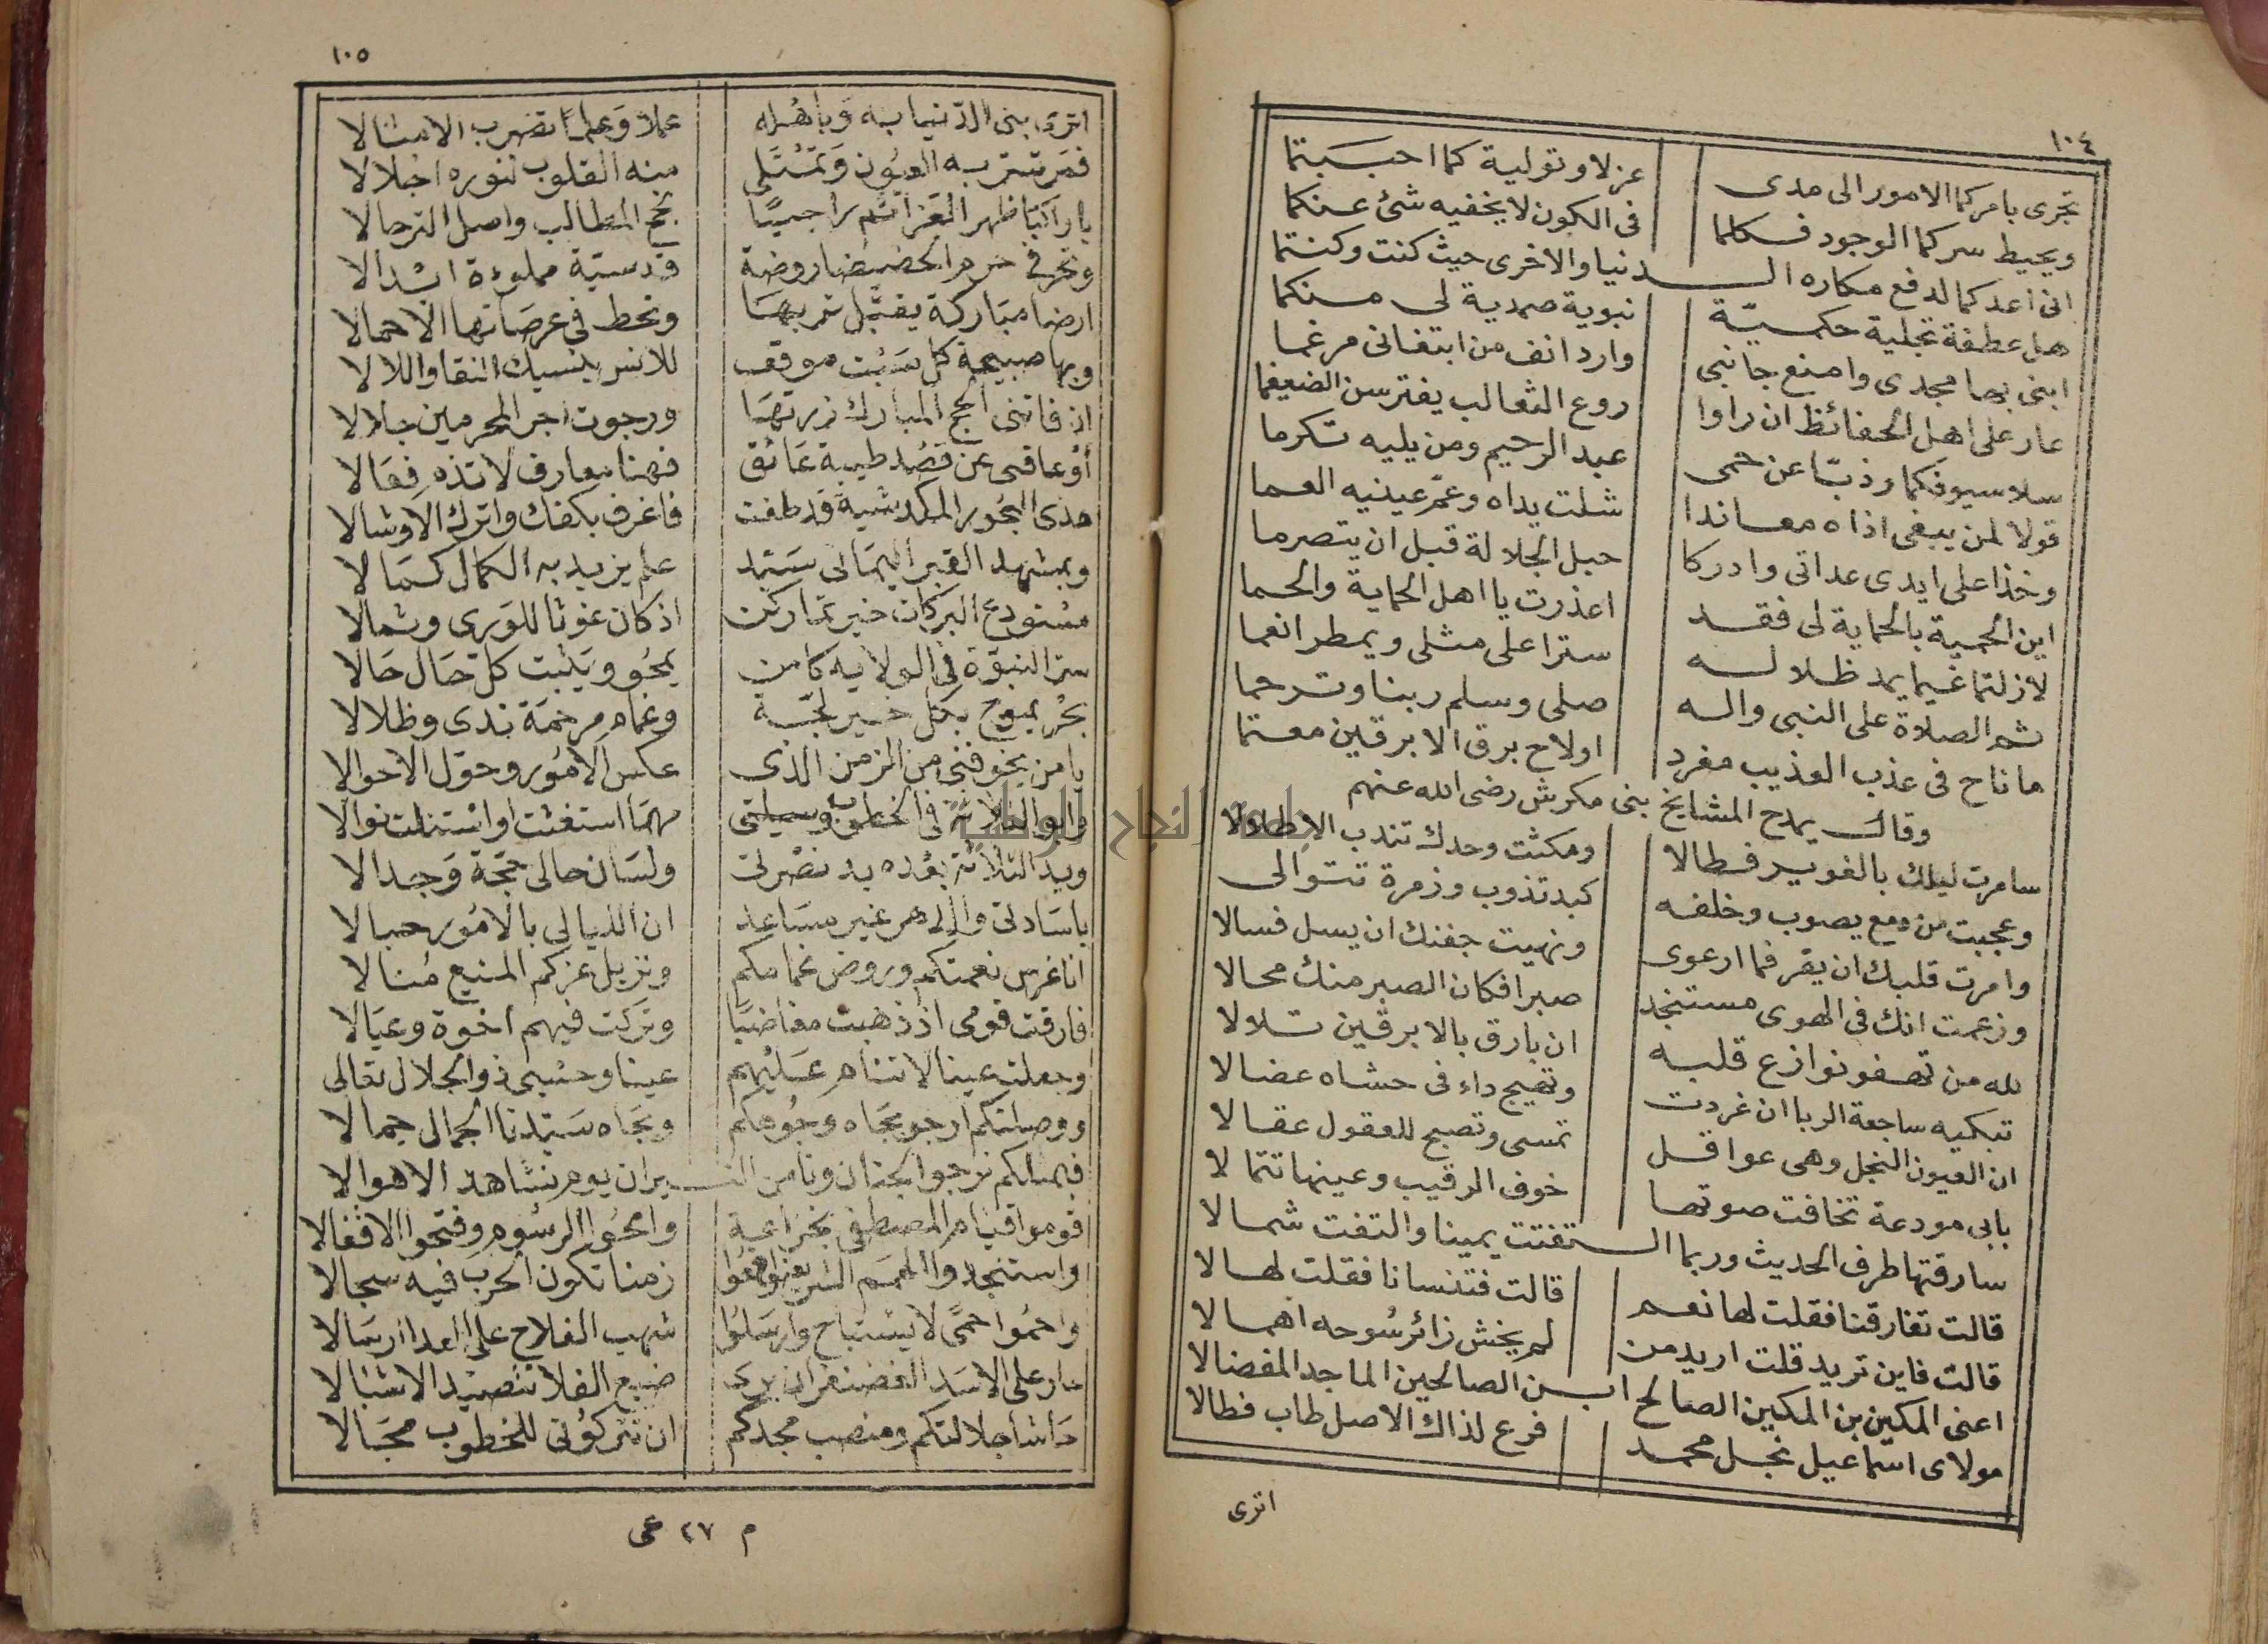 ١٠٤
تجرى بامركما الامور الى مدى عزلا وتولية كما احببتما
ويحيط سركما الوجود فكلما فى الكون لا يخفيه شئ عنكما
انى اعدكما لدفع مكاره الدنيا والاخرى حيث كنت وكنتما
هل عطفة تجلية حكميّة نبوية صمدية لى منكما
ابنى بها مجدى وامنع جانبى وارد انف من ابتغانى مرغما
عار على اهل الحفائظ ان راوا روع الثعالب يفترسن الضيغما
سلا سيوفكما وذبّا عن حمى عبد الرحيم ومن يليه تكرما
قولا لمن يبغى اذاه معاندا شلت يداه وعمّ عينيه العما
وخذا على ايدى عداتى وادركا حبل الجلالة قبل ان يتصرما
اين الحمية بالحماية لى فقد اعذرت يا اهل الحماية والحما
لازلتما غيما يمد ظلاله سترا على مثلى ويمطر انعما
ثم الصلاة على النبى واله صلى وسلم ربنا وترحما
ما ناح فى عذب العذيب مغرد اولاح برق الابرقين معتما
وقال يمدح المشايخ بنى مكرش رضى الله عنهم
سامرت ليلك بالغوير فطالا ومكثت وحدك تندب الاطلالا
وعجبت من دمع يصوب وخلفه كبد تذوب وزمرة تتوالى
وامرت قلبك ان يقر فما ارعوى ونهيت جفنك ان يسل فسالا
وزعمت انك فى الهوى مستنجد صبرا فكان الصبر منك محالا
لله من تهفو نوازع قلبه ان بارق بالابرقين تلالا
تبكيه ساجعة الربا ان غردت وتهيج داء فى حشاه عضالا
ان العيون النجل وهى عواقل تمسى وتصبح للعقول عقالا
بابى مودعة تخافت صوتها خوف الرقيب وعينها تتمالا
سارقتها طرف الحديث وربما التفتت يمينا والتفت شمالا
قالت تفارقنا فقلت لها نعم قالت فتنسانا فقلت لها لا
قالت فاين تريد قلت اريد من لم يخش زائر سُوحه اهمالا
اعنى المكين بن المكين الصالح ابن الصالحين الماجد المفضالا
مولاى اسماعيل نجل محمد فرع لذاك الاصل طاب فطالا
اترى
١٠٥
اترى بنى الدّنيا به وَباهْله عملاً وَعلمًا تضرب الامثالا
قمر تقرّ به العيُون وَتمْتَلى منه القلوب لنوره اجلالا
يا راكبًا ظهر العَزائم راجيًا نجح المطالب واصل الترحالا
ارضا مبَاركة يقبّل تربهَا وتحط فى عرصَاتها الاحمالا
وبها صبيحة كل سَبْت موقف للانس ينسيك النقا واللالا
اذ فاتنى الحج المبارك زرتهَا ورجوت اجر المحرمين جلالا
أوْ عاقنى عن قصْد طيبة عَائق فهنا معارف لا تذم فعَالا
هذى البحُور المكدشية قد طفت فاغرف بكفك واترك الاوشالا
وبمشهد القبر اليمَانى سَيّد علم يزيد به الكمال كمَالا
مسْتودع البركات خير مبارك اذ كان غوثا للوَرى وثمالا
سر النبوّة فى الولايه كامن يمحُو ويَثبت كل حَال حَالا
بحْر يموج بكل خير لجّة وغمام مرحمَة ندى وظلالا
يا من يخوفنى من الزمن الذى عكس الامُور وحوّل الاحوالا
وابو الثلاثة فى الخطوب وسيلتى مهمَا استغثت او اسْتنلت نوالا
ويد الثلاثة بعْده يد نصْرتى ولسَان حالى حجّة وَجدالا
يا سَادتى والدهر غير مسَاعد ان الليالى بالامُور حبالا
انا غرس نعمتكم وروض غمامكم ونزيل عزكم المنيع مُنالا
فارقت قومى اذ ذهبت مغاضبًا وتركت فيهم اخوة وعيَالا
وجعلت عينا لا تنام عَليْهم عينا وحسْبى ذو الجلال تعالى
ووصلتكم ارجو بجَاه وجُوهكم وبجَاه سَيّدنا الجمال جمالا
فبمثلكم نرجوا الجنان ونامن النيران يوم نشاهد الاهوالا
قوموا قيام المصطفى بخزاعة وامحُوا الرسُوم وفتحوا الاقفالا
واستنجدوا الهمم الشريفة وادفعُوا زمنا تكون الحرب فيه سجالا
واحمُوا حمًى لا يسْتباح وارسَلوُا شهب الفلاح على العدا ارسَالا
عار على الاسَد الغضنفر ان يرى ضبع الفلا تتصيْد الاشبَالا
حَاشا جلالتكم ومنصب مجدكم ان تتركوُنى للخطوب مجَالا
م ٢٧ عى